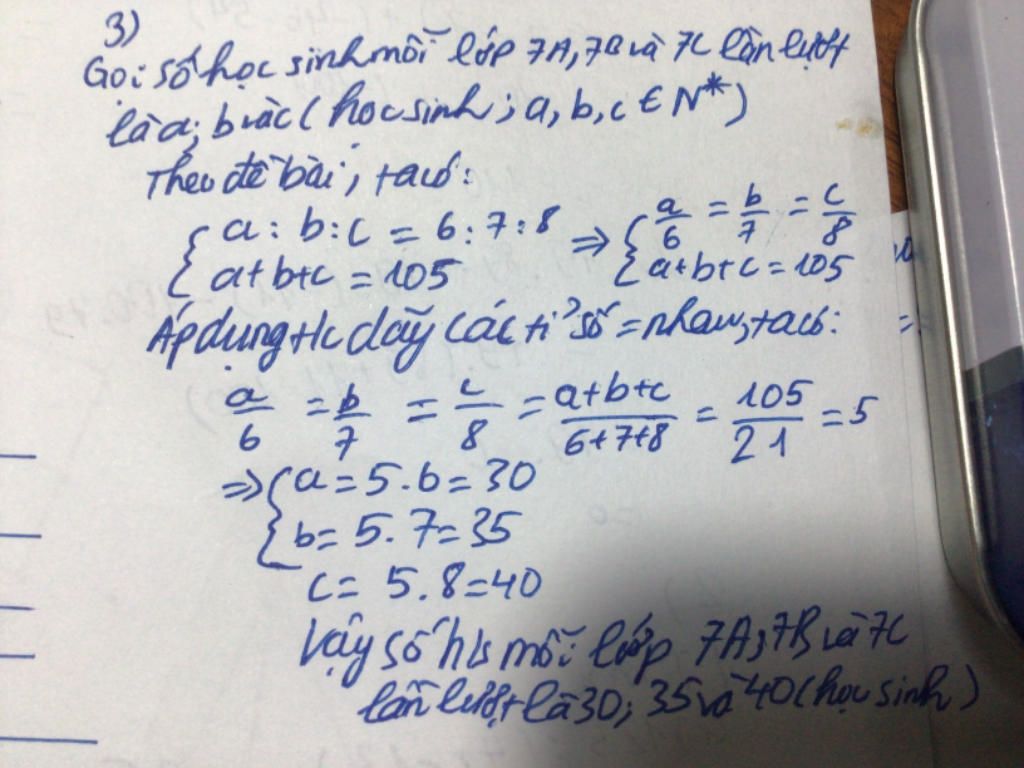 3)
Gọi số học sinh mỗi lớp 7A, 7B và 7C lần lượt
là a; b và c (học sinh; a, b, c ∈ N*)
Theo đề bài, ta có:
{ a : b : c = 6 : 7 : 8 ⇒ { a/6 = b/7 = c/8
a+b+c = 105 a+b+c = 105
Áp dụng t/c dãy các tỉ số = nhau, ta có:
a/6 = b/7 = c/8 = (a+b+c)/(6+7+8) = 105/21 = 5
⇒ { a = 5.6 = 30
b = 5.7 = 35
c = 5.8 = 40
Vậy số h/s mỗi lớp 7A, 7B và 7C
lần lượt là 30; 35 và 40 (học sinh)